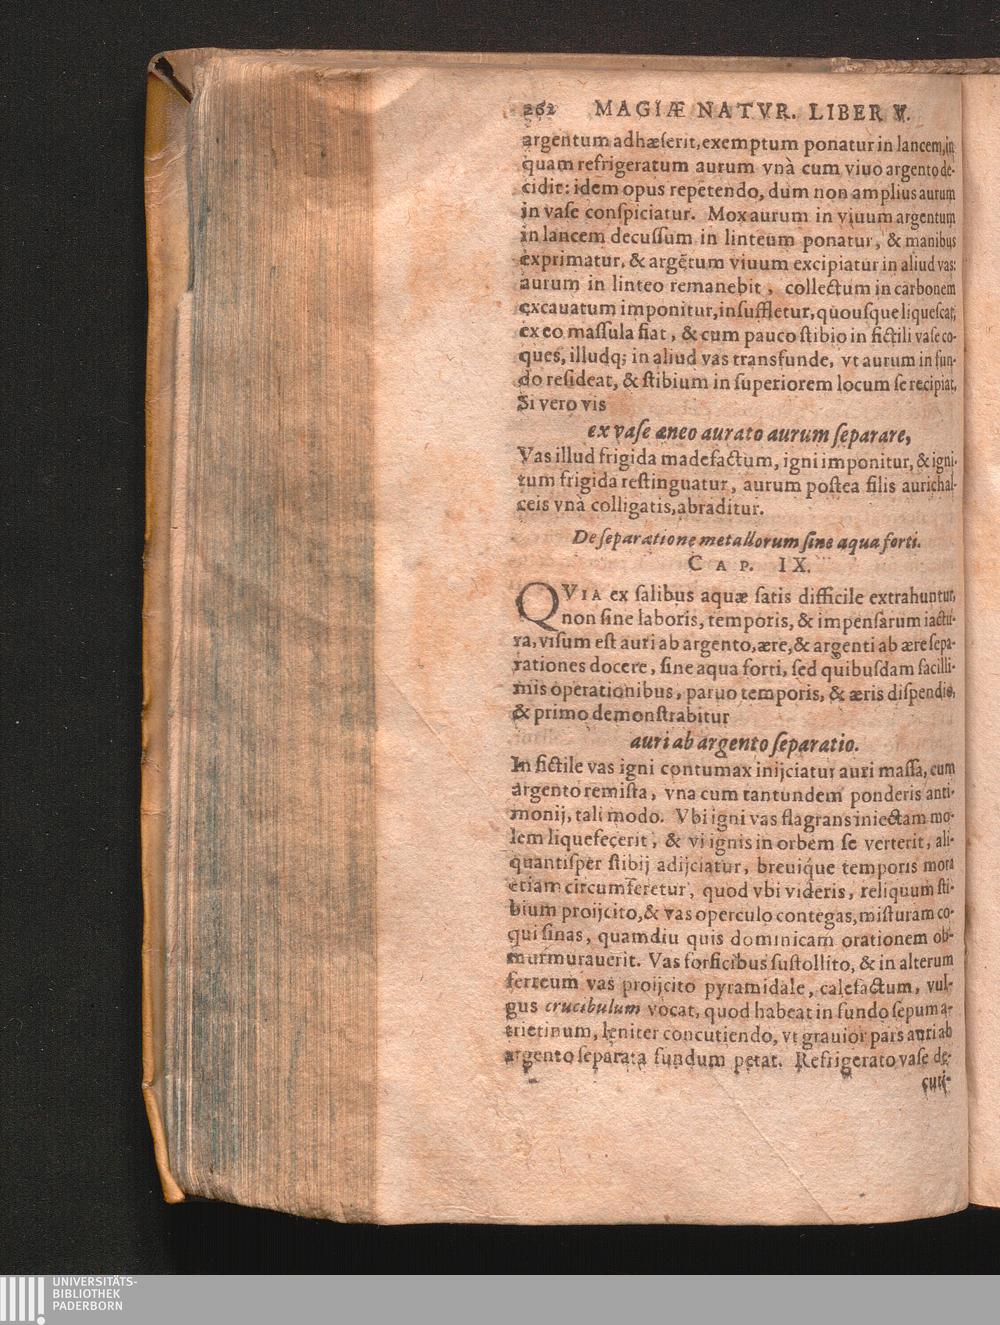 262 MAGIÆ NATVR. LIBER V.
argentum adhæſerit, exemptum ponatur in lancem, in
quam refrigeratum aurum vnà cum viuo argento de-
cidit: idem opus repetendo, dum non amplius aurum
in vaſe conſpiciatur. Mox aurum in viuum argentum
in lancem decuſſum in linteum ponatur, & manibus
exprimatur, & argẽtum viuum excipiatur in aliud vas:
aurum in linteo remanebit, collectum in carbonem
excauatum imponitur, inſuffletur, quouſque liqueſcat,
ex eo maſſula fiat, & cum pauco ſtibio in fictili vaſe co-
ques, illudq; in aliud vas transfunde, vt aurum in fun-
do reſideat, & ſtibium in ſuperiorem locum ſe recipiat,
Si vero vis
ex vaſe æneo aurato aurum ſeparare,
Vas illud frigida madefactum, igni imponitur, & igni-
tum frigida reſtinguatur, aurum poſtea filis aurichal-
ceis vna colligatis, abraditur.
De ſeparatione metallorum ſine aqua forti.
CAP. IX.
QVIA ex ſalibus aquæ ſatis difficile extrahuntur,
non ſine laboris, temporis, & impenſarum iactu-
ra, viſum eſt auri ab argento, ære, & argenti ab ære ſepa-
rationes docere, ſine aqua forti, ſed quibuſdam facilli-
mis operationibus, paruo temporis, & æris diſpendio,
& primo demonſtrabitur
auri ab argento ſeparatio.
In fictile vas igni contumax inijciatur auri maſſa, cum
argento remiſta, vna cum tantundem ponderis anti-
monij, tali modo. Vbi igni vas flagrans iniectam mo-
lem liquefecerit, & vi ignis in orbem ſe verterit, ali-
quantiſper ſtibij adijciatur, breuiq́ue temporis mora
etiam circumferetur, quod vbi videris, reliquum ſti-
bium proijcito, & vas operculo contegas, miſturam co-
qui ſinas, quamdiu quis dominicam orationem ob-
murmurauerit. Vas forficibus ſuſtollito, & in alterum
ferreum vas proijcito pyramidale, calefactum, vul-
gus crucibulum vocat, quod habeat in fundo ſepum a-
rietinum, leniter concutiendo, vt grauior pars auri ab
argento ſeparata fundum petat. Refrigerato vaſe de-
cuti-
UNIVERSITÄTS-
BIBLIOTHEK
PADERBORN